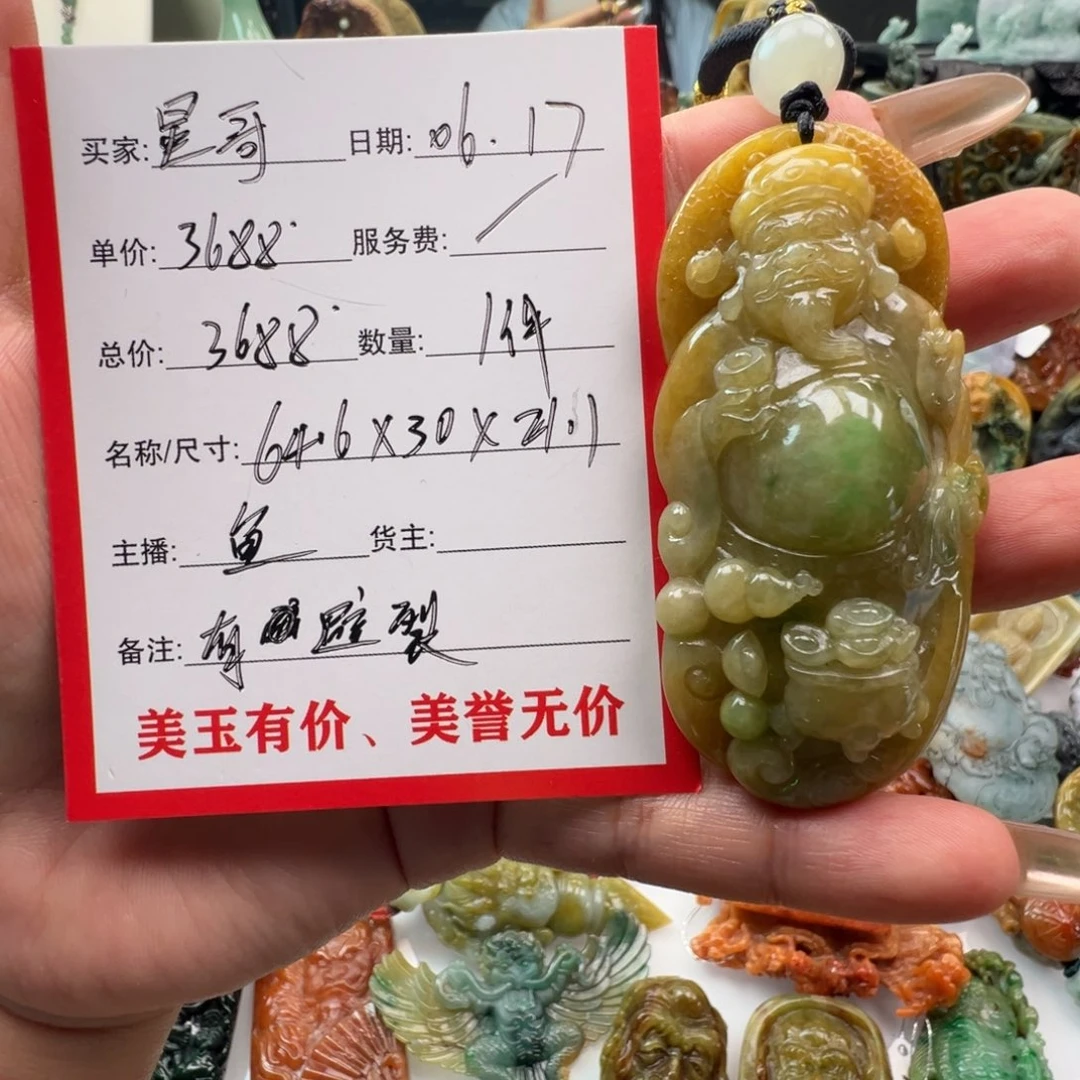 买家: 星哥 日期: 06.17
单价: 3688 服务费: /
总价: 3688 数量: 1件
名称/尺寸: 64.6 X 30 X 21.1
主播: 鱼 货主:
备注: 有 裂
美玉有价、美誉无价